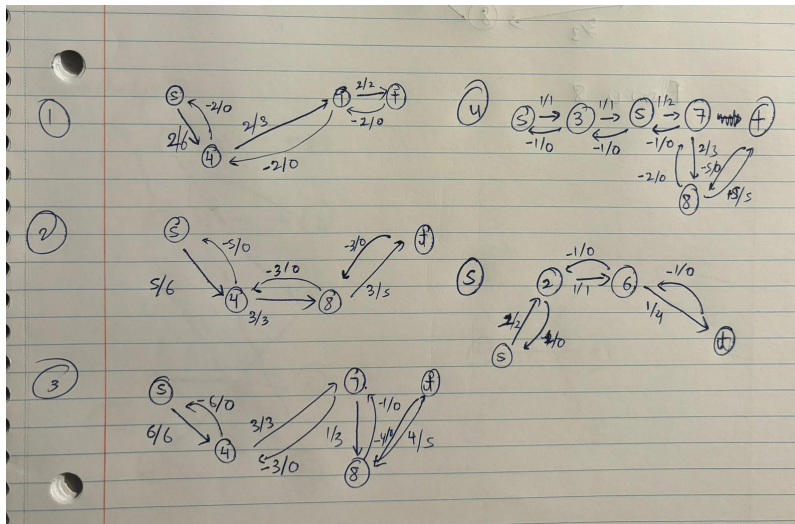 1
s
-2/0
2/6
4
2/3
-2/0
7
2/2
-2/0
t
2
s
-5/0
5/6
4
-3/0
3/3
8
-3/0
3/5
t
3
s
-6/0
6/6
4
3/3
-3/0
7
1/3
-1/0
8
4/5
t
4
s
1/1
-1/0
3
1/1
-1/0
5
1/2
-1/0
7
t
2/3
-2/0
-5/0
8
5
s
2
-1/0
1/1
6
-1/0
1/4
t